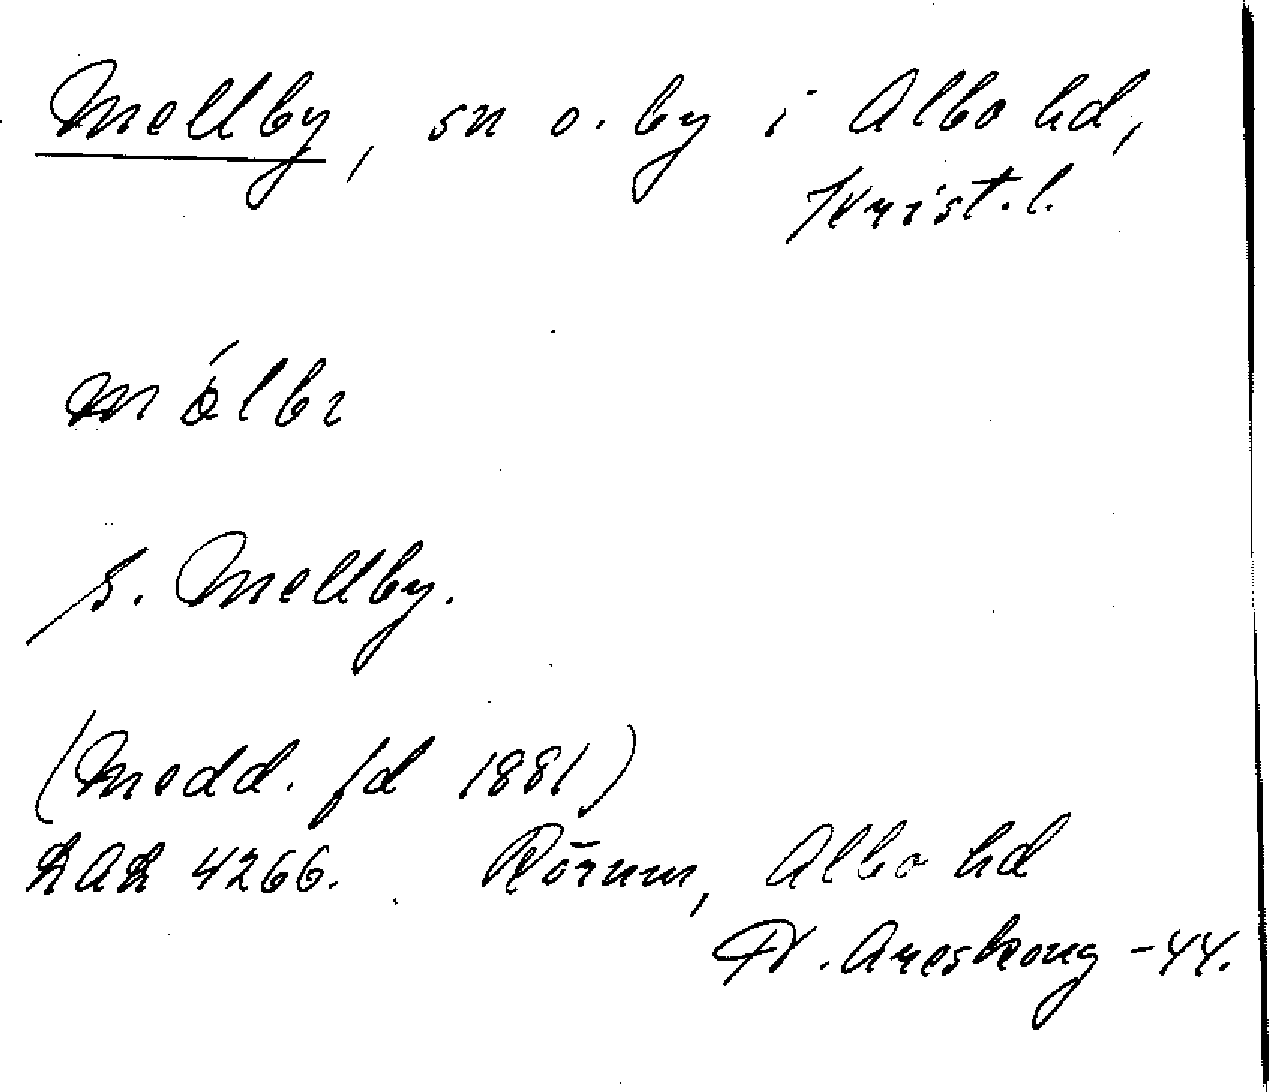 Mellby, sn o. by i Albo hd,
Krist. l.
s. Mellby.
(Medd. fd 1881)
4266. Rörum, Albo hd
Fr. Areskoug -44.